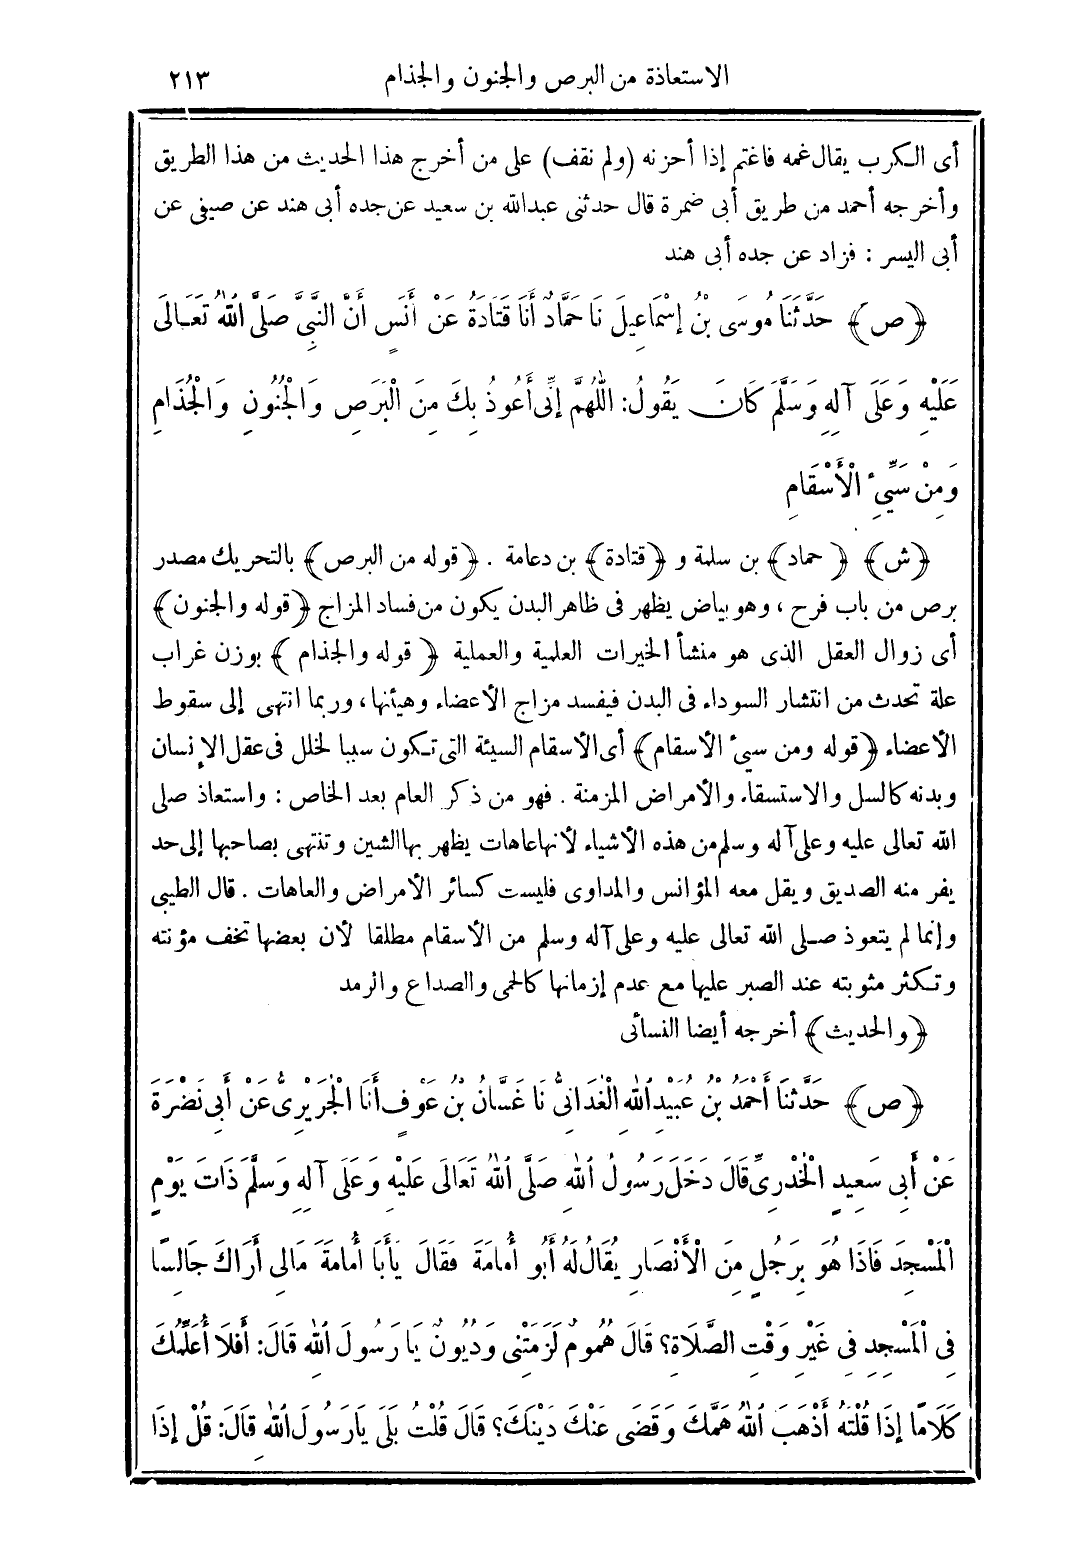 الاستعاذة من البرص والجنون والجذام ٢١٣
أى الكرب يقال غمه فاغتم إذا أحزنه (ولم نقف) على من أخرج هذا الحديث من هذا الطريق
وأخرجه أحمد من طريق أبى ضمرة قال حدثنى عبدالله بن سعيد عن جده أبى هند عن صيفى عن
أبى اليسر : فزاد عن جده أبى هند
﴿ص﴾ حَدَّثَنَا مُوسَى بْنُ إِسْمَاعِيلَ نَا حَمَّادٌ أَنَا قَتَادَةُ عَنْ أَنَسٍ أَنَّ النَّبِيَّ صَلَّى اللهُ تَعَالَى
عَلَيْهِ وَعَلَى آلِهِ وَسَلَّمَ كَانَ يَقُولُ: اللَّهُمَّ إِنِّى أَعُوذُ بِكَ مِنَ الْبَرَصِ وَالْجُنُونِ وَالْجُذَامِ
وَمِنْ سَيِّئِ الْأَسْقَامِ
﴿ش﴾ ﴿حماد﴾ بن سلمة و ﴿قتادة﴾ بن دعامة . ﴿قوله من البرص﴾ بالتحريك مصدر
برص من باب فرح ، وهو بياض يظهر فى ظاهر البدن يكون من فساد المزاج ﴿قوله والجنون﴾
أى زوال العقل الذى هو منشأ الخيرات العلمية والعملية ﴿قوله والجذام﴾ بوزن غراب
علة تحدث من انتشار السوداء فى البدن فيفسد مزاج الأعضاء وهيئتها ، وربما انتهى إلى سقوط
الأعضاء ﴿قوله ومن سيئ الأسقام﴾ أى الأسقام السيئة التى تكون سببا لخلل فى عقل الإنسان
وبدنه كالسل والاستسقاء والأمراض المزمنة . فهو من ذكر العام بعد الخاص : واستعاذ صلى
الله تعالى عليه وعلى آله وسلم من هذه الأشياء لأنها عاهات يظهر بها الشين وتنتهى بصاحبها إلى حد
يفر منه الصديق ويقل معه المؤانس والمداوى فليست كسائر الأمراض والعاهات . قال الطيبى
وإنما لم يتعوذ صلى الله تعالى عليه وعلى آله وسلم من الأسقام مطلقا لأن بعضها تخف مؤنته
وتكثر مثوبته عند الصبر عليها مع عدم إزمانها كالحمى والصداع والرمد
﴿والحديث﴾ أخرجه أيضا النسائى
﴿ص﴾ حَدَّثَنَا أَحْمَدُ بْنُ عُبَيْدِ اللهِ الْغُدَانِىُّ نَا غَسَّانُ بْنُ عَوْفٍ أَنَا الْجُرَيْرِىُّ عَنْ أَبِى نَضْرَةَ
عَنْ أَبِى سَعِيدٍ الْخُدْرِىِّ قَالَ دَخَلَ رَسُولُ اللهِ صَلَّى اللهُ تَعَالَى عَلَيْهِ وَعَلَى آلِهِ وَسَلَّمَ ذَاتَ يَوْمٍ
الْمَسْجِدَ فَإِذَا هُوَ بِرَجُلٍ مِنَ الْأَنْصَارِ يُقَالُ لَهُ أَبُو أُمَامَةَ فَقَالَ يَا أَبَا أُمَامَةَ مَالِى أَرَاكَ جَالِسًا
فِى الْمَسْجِدِ فِى غَيْرِ وَقْتِ الصَّلَاةِ؟ قَالَ هُمُومٌ لَزِمَتْنِى وَدُيُونٌ يَا رَسُولَ اللهِ قَالَ: أَفَلَا أُعَلِّمُكَ
كَلَامًا إِذَا قُلْتَهُ أَذْهَبَ اللهُ هَمَّكَ وَقَضَى عَنْكَ دَيْنَكَ؟ قَالَ قُلْتُ بَلَى يَارَسُولَ اللهِ قَالَ: قُلْ إِذَا